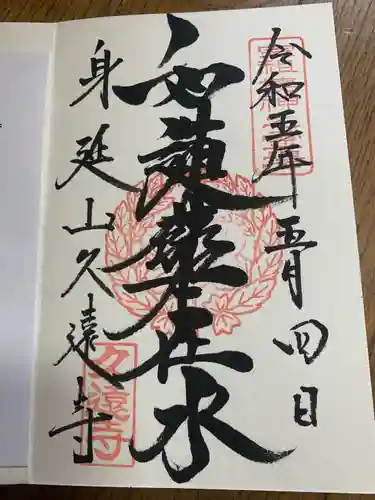 令和五年五月四日
如蓮華在水
身延山久遠寺
久遠寺